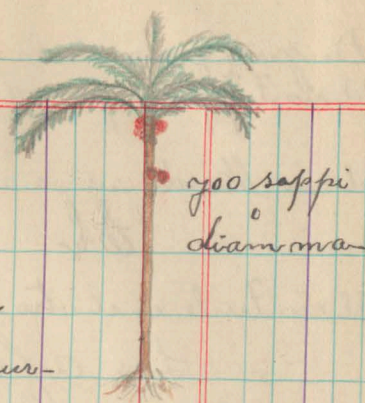 yoo sappi
o
diam ma-
ur-